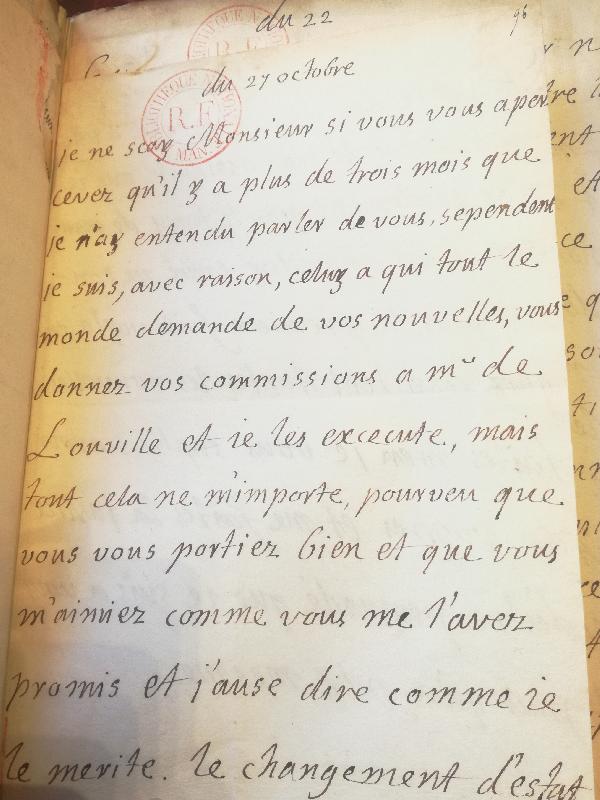 du 22
96
du 27 octobre
je ne scay Monsieur si vous vous aper
cevez qu'il y a plus de trois mois que
je n'ay entendu parler de vous, sependent
ie suis, avec raison, celuy a qui tout le
monde demande de vos nouvelles, vous
donnez vos commissions a mr de
Louville et ie les excecute, mais
tout cela ne m'importe, pourveu que
vous vous portiez bien et que vous
m'aimiez comme vous me l'avez
promis et j'ause dire comme ie
le merite. le changement d'estat
BIBLIOTHEQUE NATIONALE
R.F.
MAN.